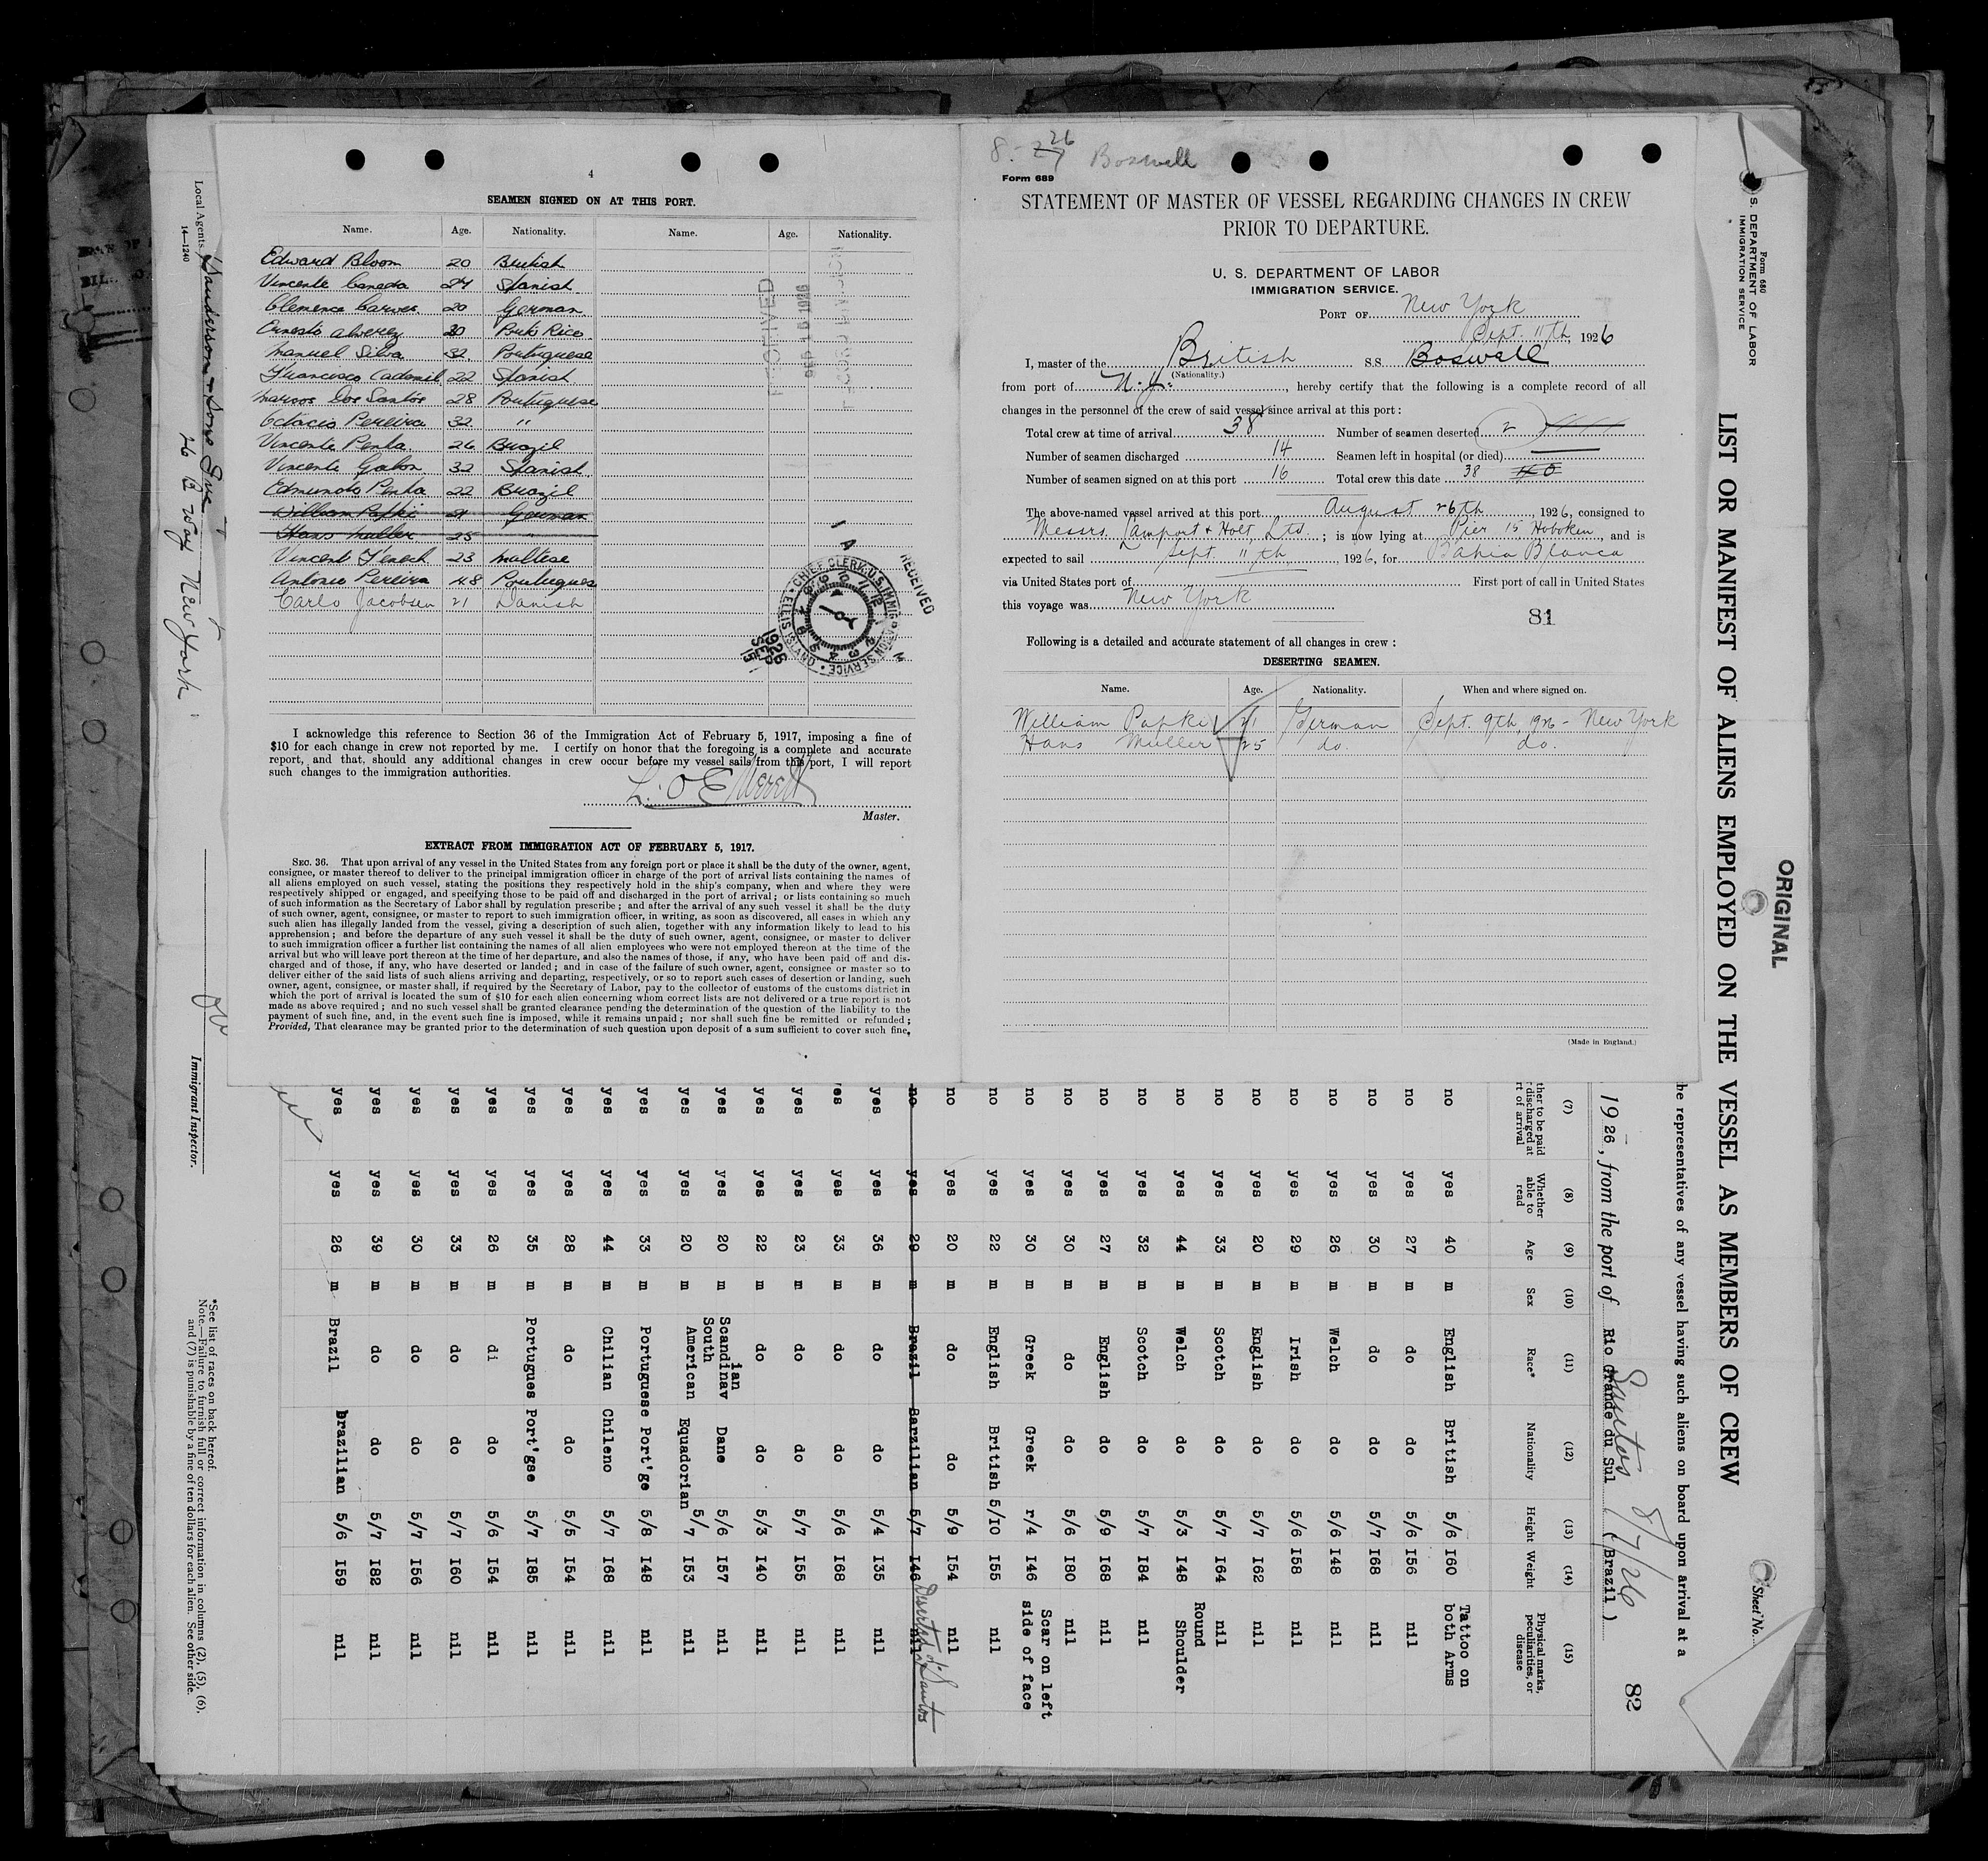 4
SEAMEN SIGNED ON AT THIS PORT.
Name. Age. Nationality. Name. Age. Nationality.
Edward Bloom 20 British
Vincente Caneda 24 Spanish
Clemence Carver 20 German
Ernesto Alverez 30 Porto Rico
Manuel Silva 32 Portuguese
Francisco Cadamil 22 Spanish
Marcos Dos Santos 28 Portuguese
Octacio Pereira 32 "
Vincente Penha 26 Brazil
Vincente Gabon 32 Spanish
Edmundo Penha 22 Brazil
William Papki 21 German
Hans Muller 25 "
Vincent Finech 23 Maltese
Antonio Pereira 48 Portuguese
Carlo Jacobsen 21 Danish
RECEIVED
CHIEF CLERK U.S. IMMIGRATION SERVICE
ELLIS ISLAND
1926 SEP
RECEIVED
I acknowledge this reference to Section 36 of the Immigration Act of February 5, 1917, imposing a fine of
$10 for each change in crew not reported by me. I certify on honor that the foregoing is a complete and accurate
report, and that, should any additional changes in crew occur before my vessel sails from this port, I will report
such changes to the immigration authorities.
Master.
EXTRACT FROM IMMIGRATION ACT OF FEBRUARY 5, 1917.
SEC. 36. That upon arrival of any vessel in the United States from any foreign port or place it shall be the duty of the owner, agent,
consignee, or master thereof to deliver to the principal immigration officer in charge of the port of arrival lists containing the names of
all aliens employed on such vessel, stating the positions they respectively hold in the ship's company, when and where they were
respectively shipped or engaged, and specifying those to be paid off and discharged in the port of arrival; or lists containing so much
of such information as the Secretary of Labor shall by regulation prescribe; and after the arrival of any such vessel it shall be the duty
of such owner, agent, consignee, or master to report to such immigration officer, in writing, as soon as discovered, all cases in which any
such alien has illegally landed from the vessel, giving a description of such alien, together with any information likely to lead to his
apprehension; and before the departure of any such vessel it shall be the duty of such owner, agent, consignee, or master to deliver
to such immigration officer a further list containing the names of all alien employees who were not employed thereon at the time of the
arrival but who will leave port thereon at the time of her departure, and also the names of those, if any, who have been paid off and dis-
charged and of those, if any, who have deserted or landed; and in case of the failure of such owner, agent, consignee or master so to
deliver either of the said lists of such aliens arriving and departing, respectively, or so to report such cases of desertion or landing, such
owner, agent, consignee, or master shall, if required by the Secretary of Labor, pay to the collector of customs of the customs district in
which the port of arrival is located the sum of $10 for each alien concerning whom correct lists are not delivered or a true report is not
made as above required; and no such vessel shall be granted clearance pending the determination of the question of the liability to the
payment of such fine, and, in the event such fine is imposed, while it remains unpaid; nor shall such fine be remitted or refunded;
Provided, That clearance may be granted prior to the determination of such question upon deposit of a sum sufficient to cover such fine,
8.-27 26 Boswell
Form 689
STATEMENT OF MASTER OF VESSEL REGARDING CHANGES IN CREW
PRIOR TO DEPARTURE.
U. S. DEPARTMENT OF LABOR
IMMIGRATION SERVICE.
PORT OF New York
Sept. 11th, 1926
I, master of the British S.S. Boswell
(Nationality.)
from port of N.Y., hereby certify that the following is a complete record of all
changes in the personnel of the crew of said vessel since arrival at this port:
Total crew at time of arrival 38 Number of seamen deserted 2
Number of seamen discharged 14 Seamen left in hospital (or died)
Number of seamen signed on at this port 16 Total crew this date 38 40
The above-named vessel arrived at this port August 26th, 1926, consigned to
Messrs. Lamport & Holt, Ltd.; is now lying at Pier 15 Hoboken, and is
expected to sail Sept. 11th, 1926, for Bahia Blanca
via United States port of First port of call in United States
this voyage was New York
81
Following is a detailed and accurate statement of all changes in crew:
DESERTING SEAMEN.
Name. Age. Nationality. When and where signed on.
William Papki 21 German Sept. 9th, 1926 - New York
Hans Muller 25 do. do.
(Made in England.)
Local Agents Sanderson & Sons Inc
26 B'way New York
14—1240
Immigrant Inspector.
*See list of races on back hereof.
Note.—Failure to furnish full or correct information in columns (2), (5), (6),
and (7) is punishable by a fine of ten dollars for each alien. See other side.
Form 680
U.S. DEPARTMENT OF LABOR
IMMIGRATION SERVICE
ORIGINAL
Sheet No.
LIST OR MANIFEST OF ALIENS EMPLOYED ON THE VESSEL AS MEMBERS OF CREW
he representatives of any vessel having such aliens on board upon arrival at a
1926, from the port of Rio Grande du Sul (Brazil)
Santos 8/7/26
82
(7) (8) (9) (10) (11) (12) (13) (14) (15)
ther to be paid discharged at rt of arrival Whether able to read Age Sex Race* Nationality Height Weight Physical marks, peculiarities, or disease
no yes 40 m English British 5/6 160 Tattoo on both Arms
no yes 27 m do do 5/6 156 nil
no yes 30 m do do 5/7 168 nil
no yes 26 m Welch do 5/6 148 nil
no yes 29 m Irish do 5/6 158 nil
no yes 20 m English do 5/7 162 nil
no yes 33 m Scotch do 5/7 164 nil
no yes 44 m Welch do 5/3 148 Round Shoulder
no yes 32 m Scotch do 5/7 184 nil
no yes 27 m English do 5/9 168 nil
no yes 30 m do do 5/6 180 nil
no yes 30 m Greek Greek r/4 146 Scar on left side of face
no yes 22 m English British 5/10 155 nil
no yes 20 m do do 5/9 154 nil
no yes 29 m Brazil Barzilian 5/7 146 nil Deserted at Santos
yes yes 36 m do do 5/4 135 nil
yes yes 33 m do do 5/6 168 nil
yes yes 23 m do do 5/7 155 nil
yes yes 22 m do do 5/3 140 nil
yes yes 20 m Scandinavian Dane 5/6 157 nil
yes yes 20 m South American Equadorian 5/7 153 nil
yes yes 33 m Portuguese Port'ge 5/8 148 nil
yes yes 44 m Chilian Chileno 5/7 168 nil
yes yes 28 m do do 5/5 154 nil
yes yes 35 m Portugues Port'gse 5/7 185 nil
yes yes 26 m di do 5/6 154 nil
yes yes 33 m do do 5/7 160 nil
yes yes 30 m do do 5/7 156 nil
yes yes 39 m do do 5/7 182 nil
yes yes 26 m Brazil Brazilian 5/6 159 nil